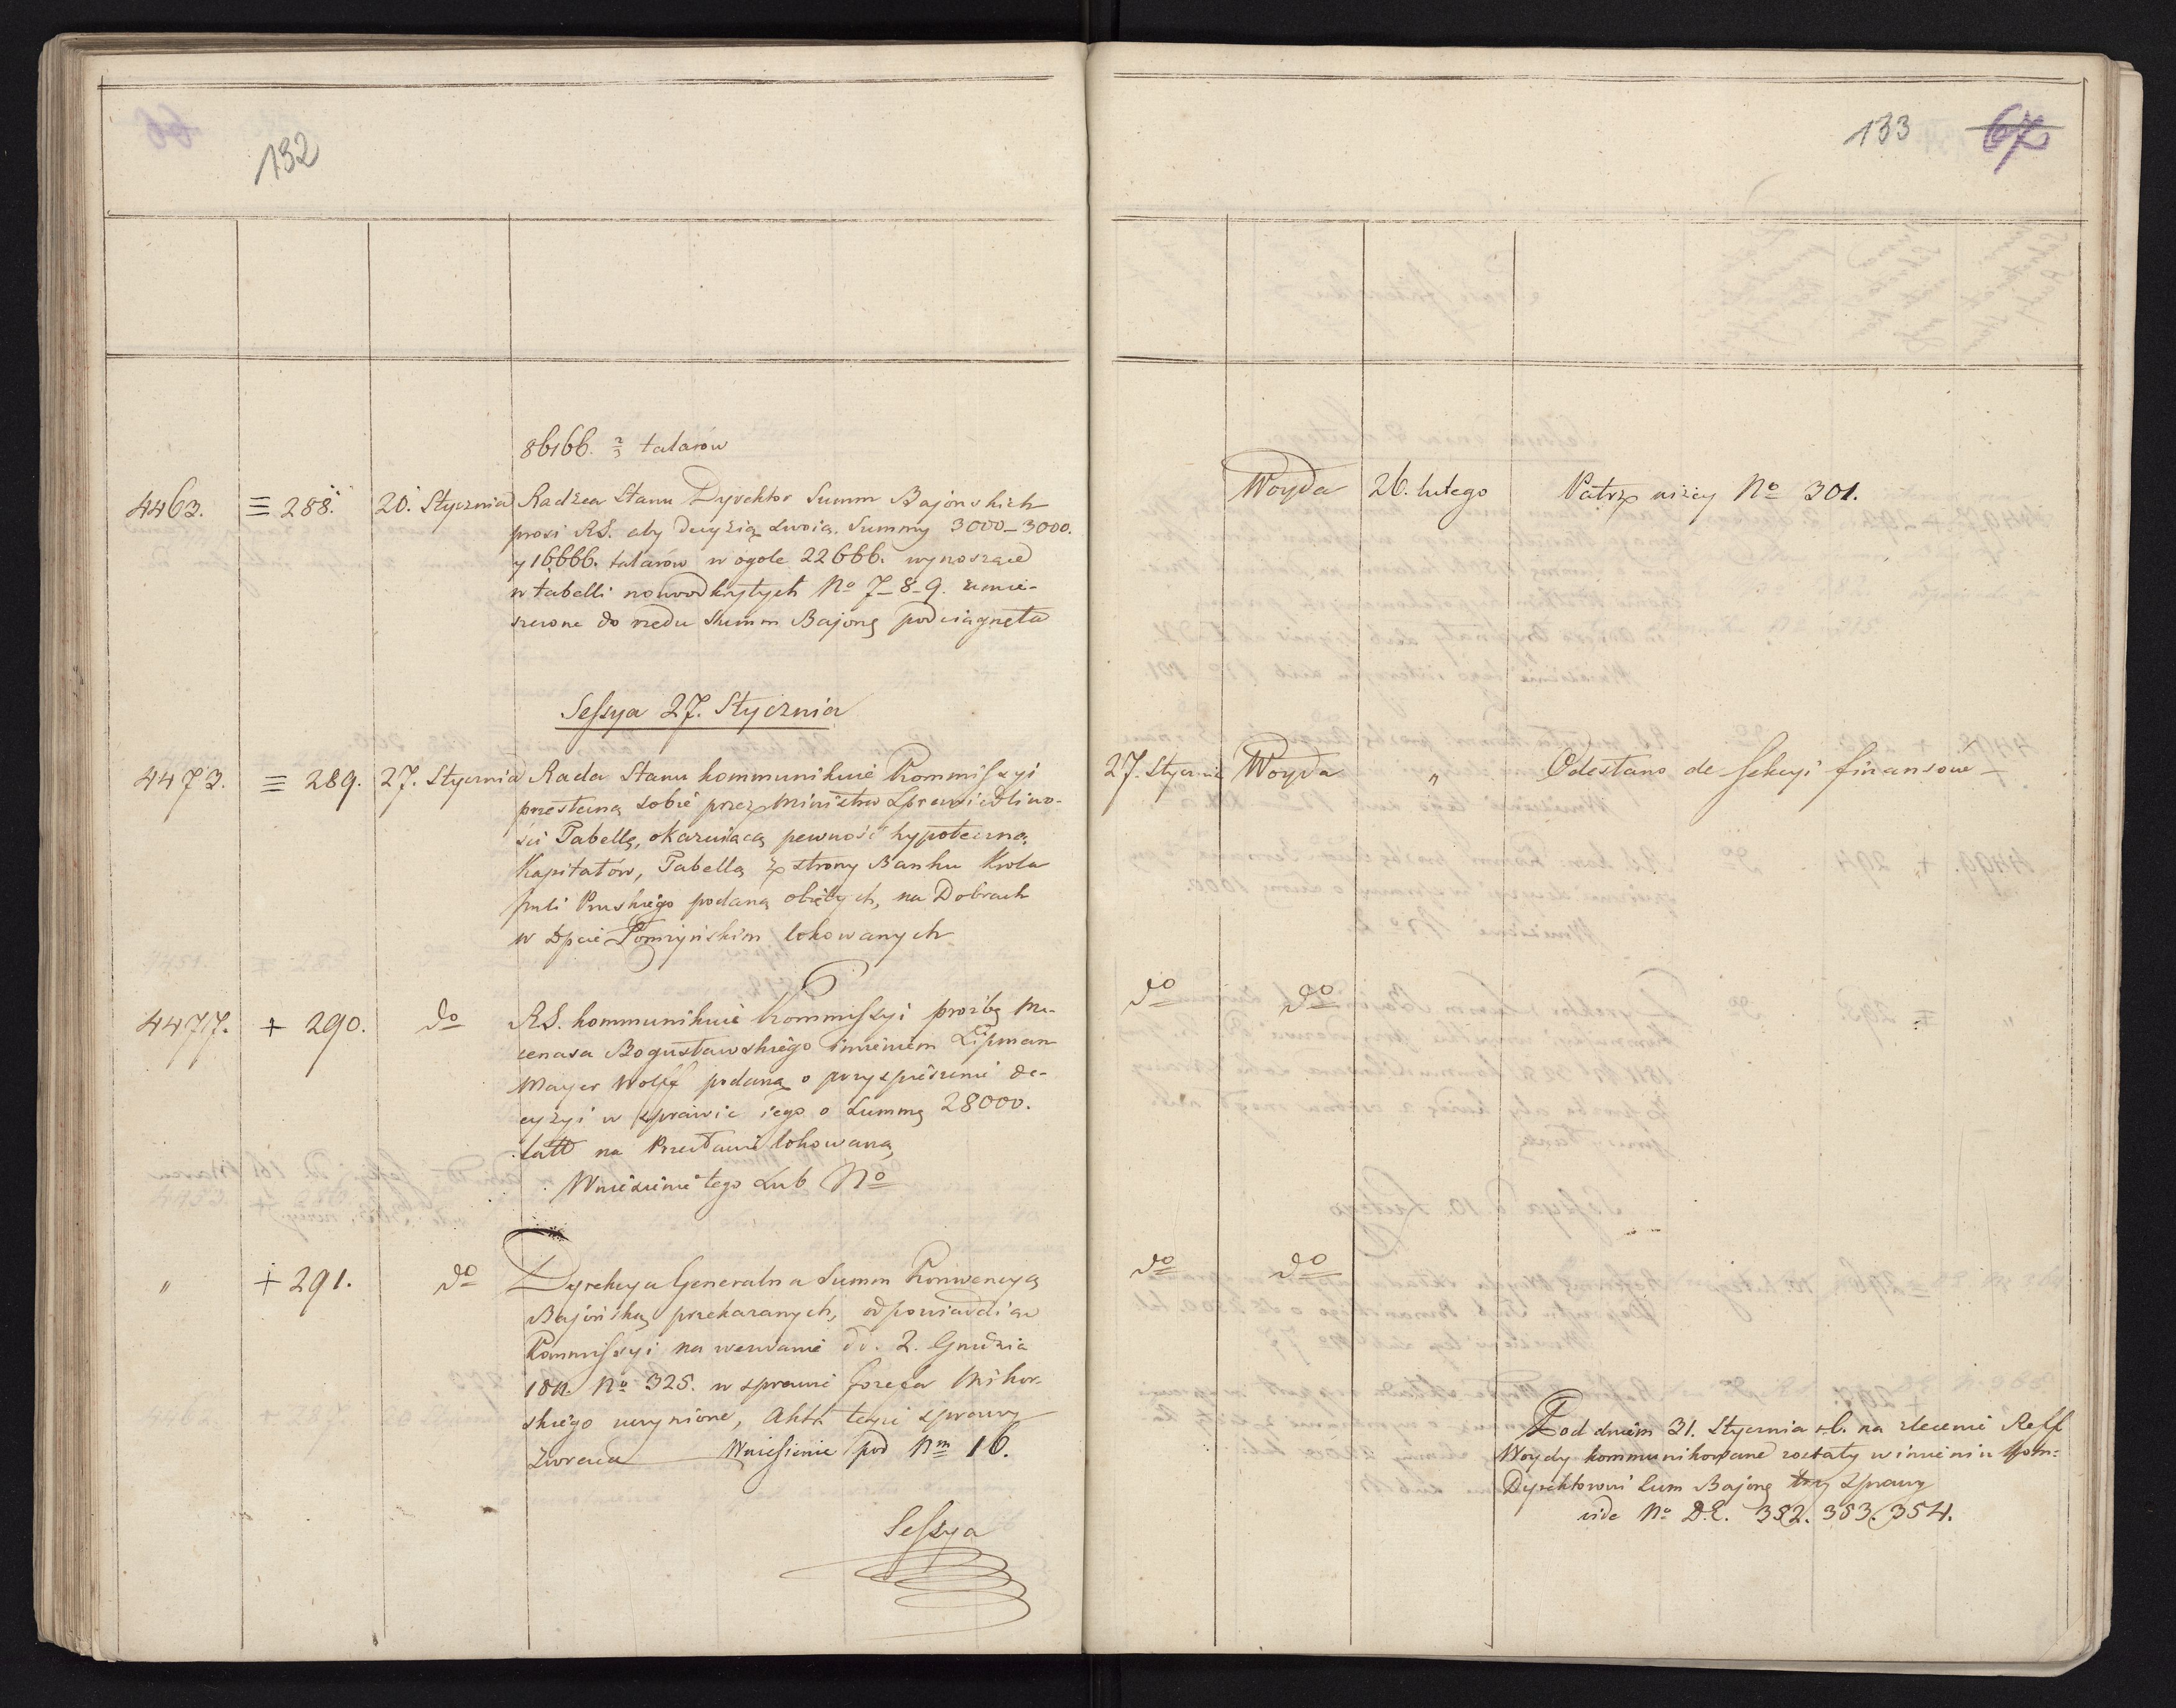 132
86166. 2/3 talarow
4463. ≡ 288. 20. Stycznia Radzca Stanu Dyrektor Summ Bajońskich
prosi RS. aby decyzią swoią Summy 3000_3000.
y 16666. talarow w ogole 22666. wynoszące
w tabelli nowoodkrytych No 7_8_9. umie-
szczone do rzędu Summ Bajons podciągnęła
Sessya 27. Stycznia
4473. ≡ 289. 27. Stycznia Rada Stanu kommunikuie Kommissyi
przesłaną sobie przez Ministra Sprawiedliwo-
ści Tabellę, okazuiącą pewność hypoteczną
Kapitałów, Tabellą z strony Banku Krola
Pruskiego podaną obiętych, na Dobrach
w Dpcie Łomżyńskim lokowanych
4477. + 290. do RS. kommunikuie Kommissyi prozbę Me-
cenasa Bogusławskiego imieniem Lipman
Mayer Wolff podaną o przyspieszenie de-
cyzyi w sprawie iego o Summę 28000.
tall na lokowaną
Wniesienie tego sub No
" + 291. do Dyrekcya Generalna Summ Konwencyą
Bajońską przekazanych, odpowiadaiąc
Kommissyi na wezwanie dd. 2. Grudnia
1811. No 325. w sprawie Jozefa Mikor-
skiego uczynione, Akta teyże sprawy
zwraca Wniesienie pod Nrm 16.
Sessya
133 67
Woyda 26. lutego Patrz niżey No 301.
27. Stycznia Woyda " Odesłano do Sekcyi finansow
do do
do do
Pod dniem 31. Stycznia r.b. na zlecenie Reff
Woydy kommunikowane zostały w imieniu Kom:
Dyrektorowi Sum Bajons trzy Sprawy
vide No D.E. 352. 353. 354.